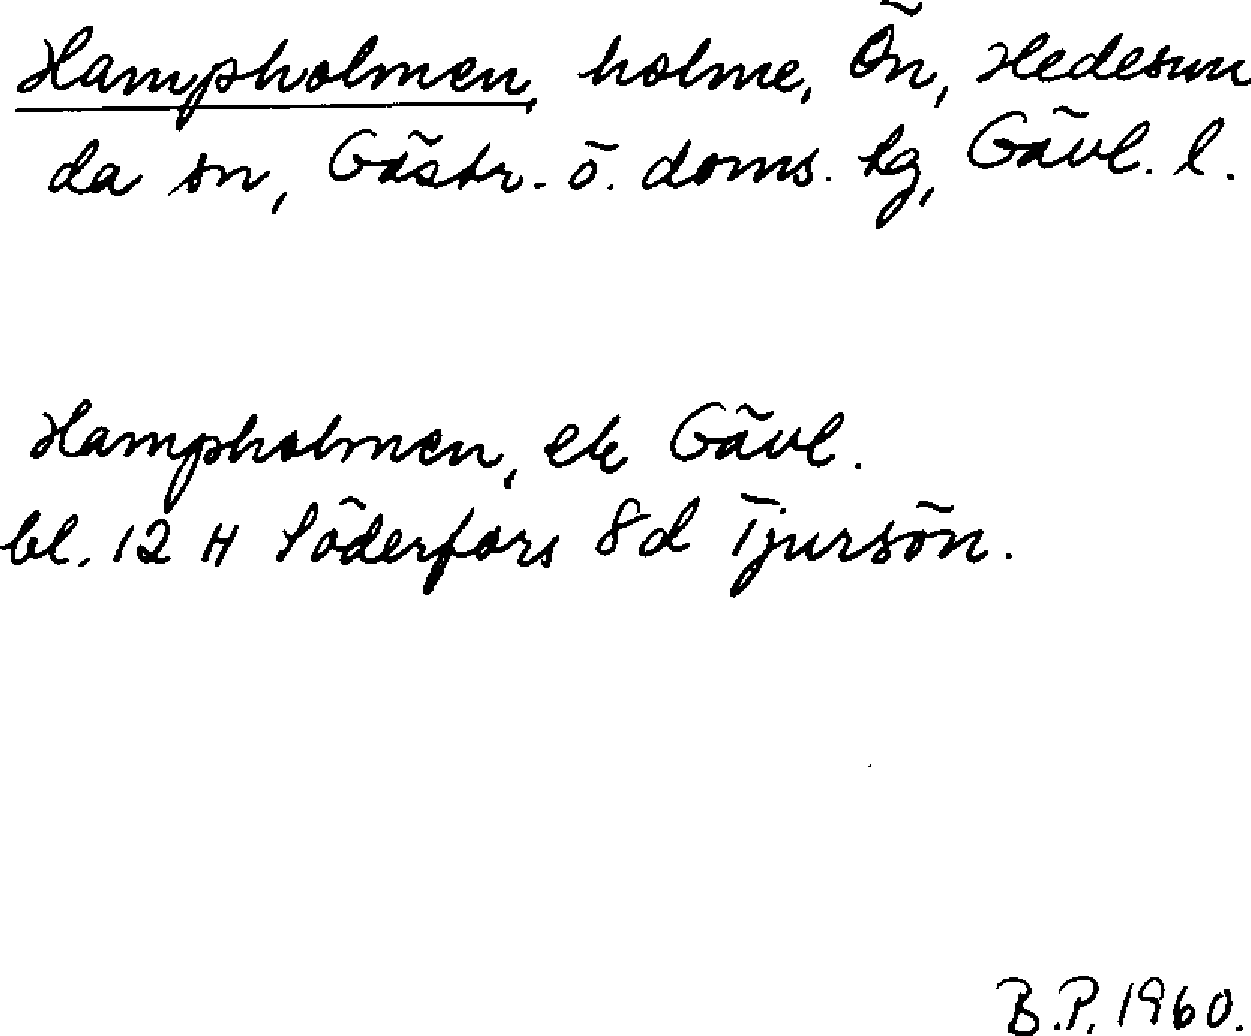 Hampholmen, holme, Ön, Hedesun
da sn, Gästr. ö. doms. tg, Gävl. l.
Hampholmen, ek Gävl.
bl. 12 H Söderfors 8d Tjursön.
B.P. 1960.